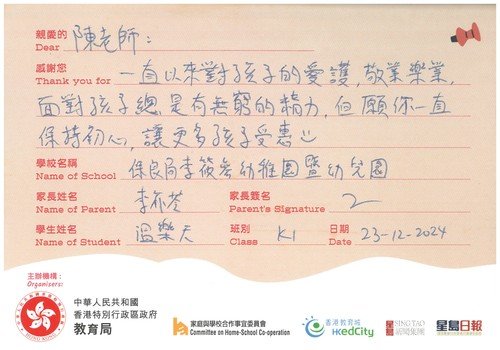 親愛的 陳老師：
Dear
感謝您 一直以來對孩子的愛護，敬業樂業，
Thank you for
面對孩子總是有無窮的精力，但願你一直
保持初心，讓更多孩子受惠
學校名稱 保良局李筱參幼稚園暨幼兒園
Name of School
家長姓名 李 家長簽名
Name of Parent Parent's Signature
學生姓名 溫樂天 班別 K1 日期 23-12-2024
Name of Student Class Date
主辦機構：
Organisers:
中華人民共和國
香港特別行政區政府
教育局
家庭與學校合作事宜委員會
Committee on Home-School Co-operation
香港教育城
HKedCity
星島 SING TAO
新聞集團
星島日報